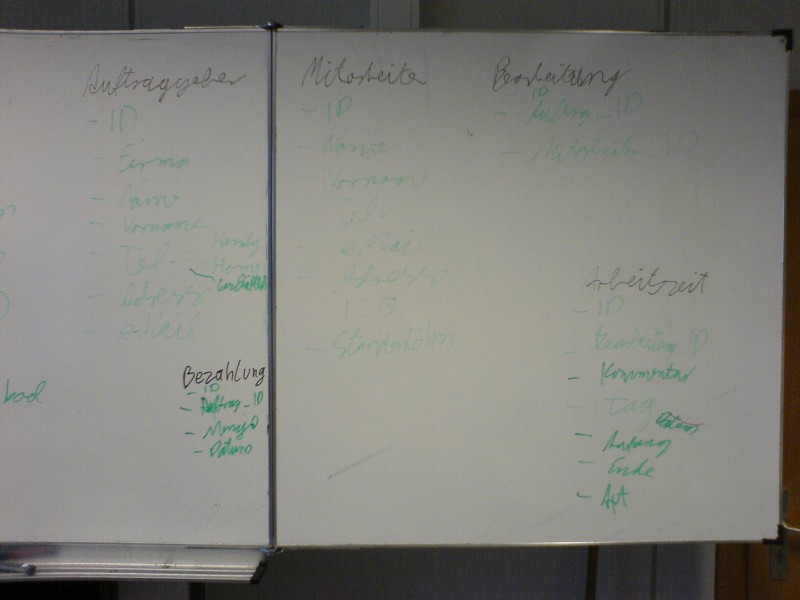 Auftraggeber
- ID
- Firma
- Name
- Vorname
- Tel. - Handy
Home
- Adresse
- eMail
Bezahlung
- ID
- Auftrag_ID
- Menge
- Datum
Mitarbeiter
- ID
- Name
- Vorname
- Tel.
- eMail
- Adresse
- ICQ
- Stundenlohn
Bearbeitung
ID
- Auftrag_ID
- Mitarbeiter_ID
Arbeitszeit
- ID
- Bearbeitung_ID
- Kommentar
- Tag
- Anfang
- Ende
- Art